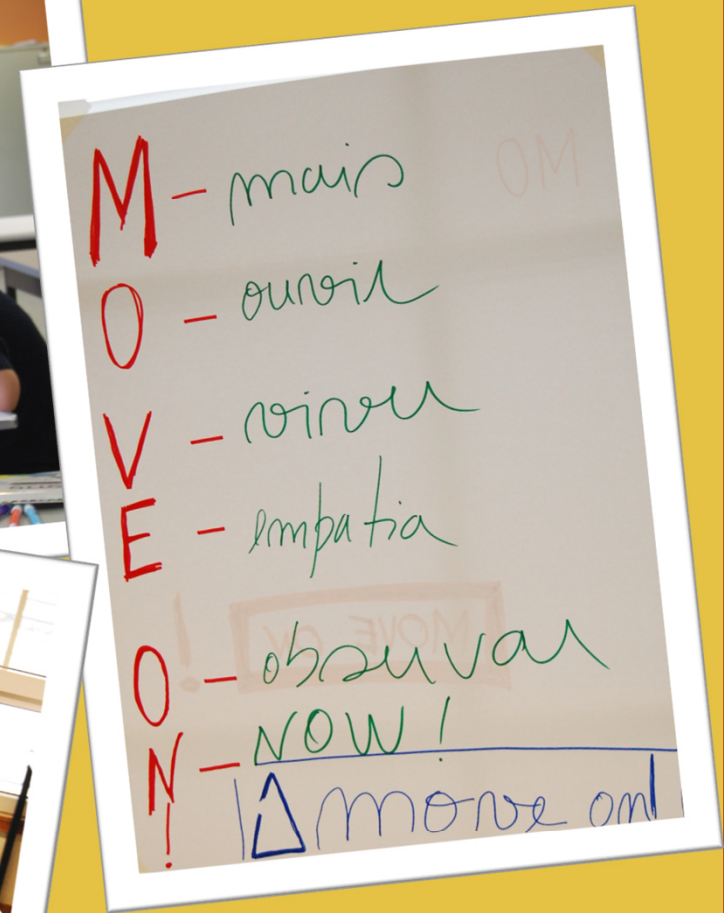 M - mais
O - ouvir
V - viver
E - empatia
O - observar
N - NOW!
! Δ move on!
MO
MOVE ON !